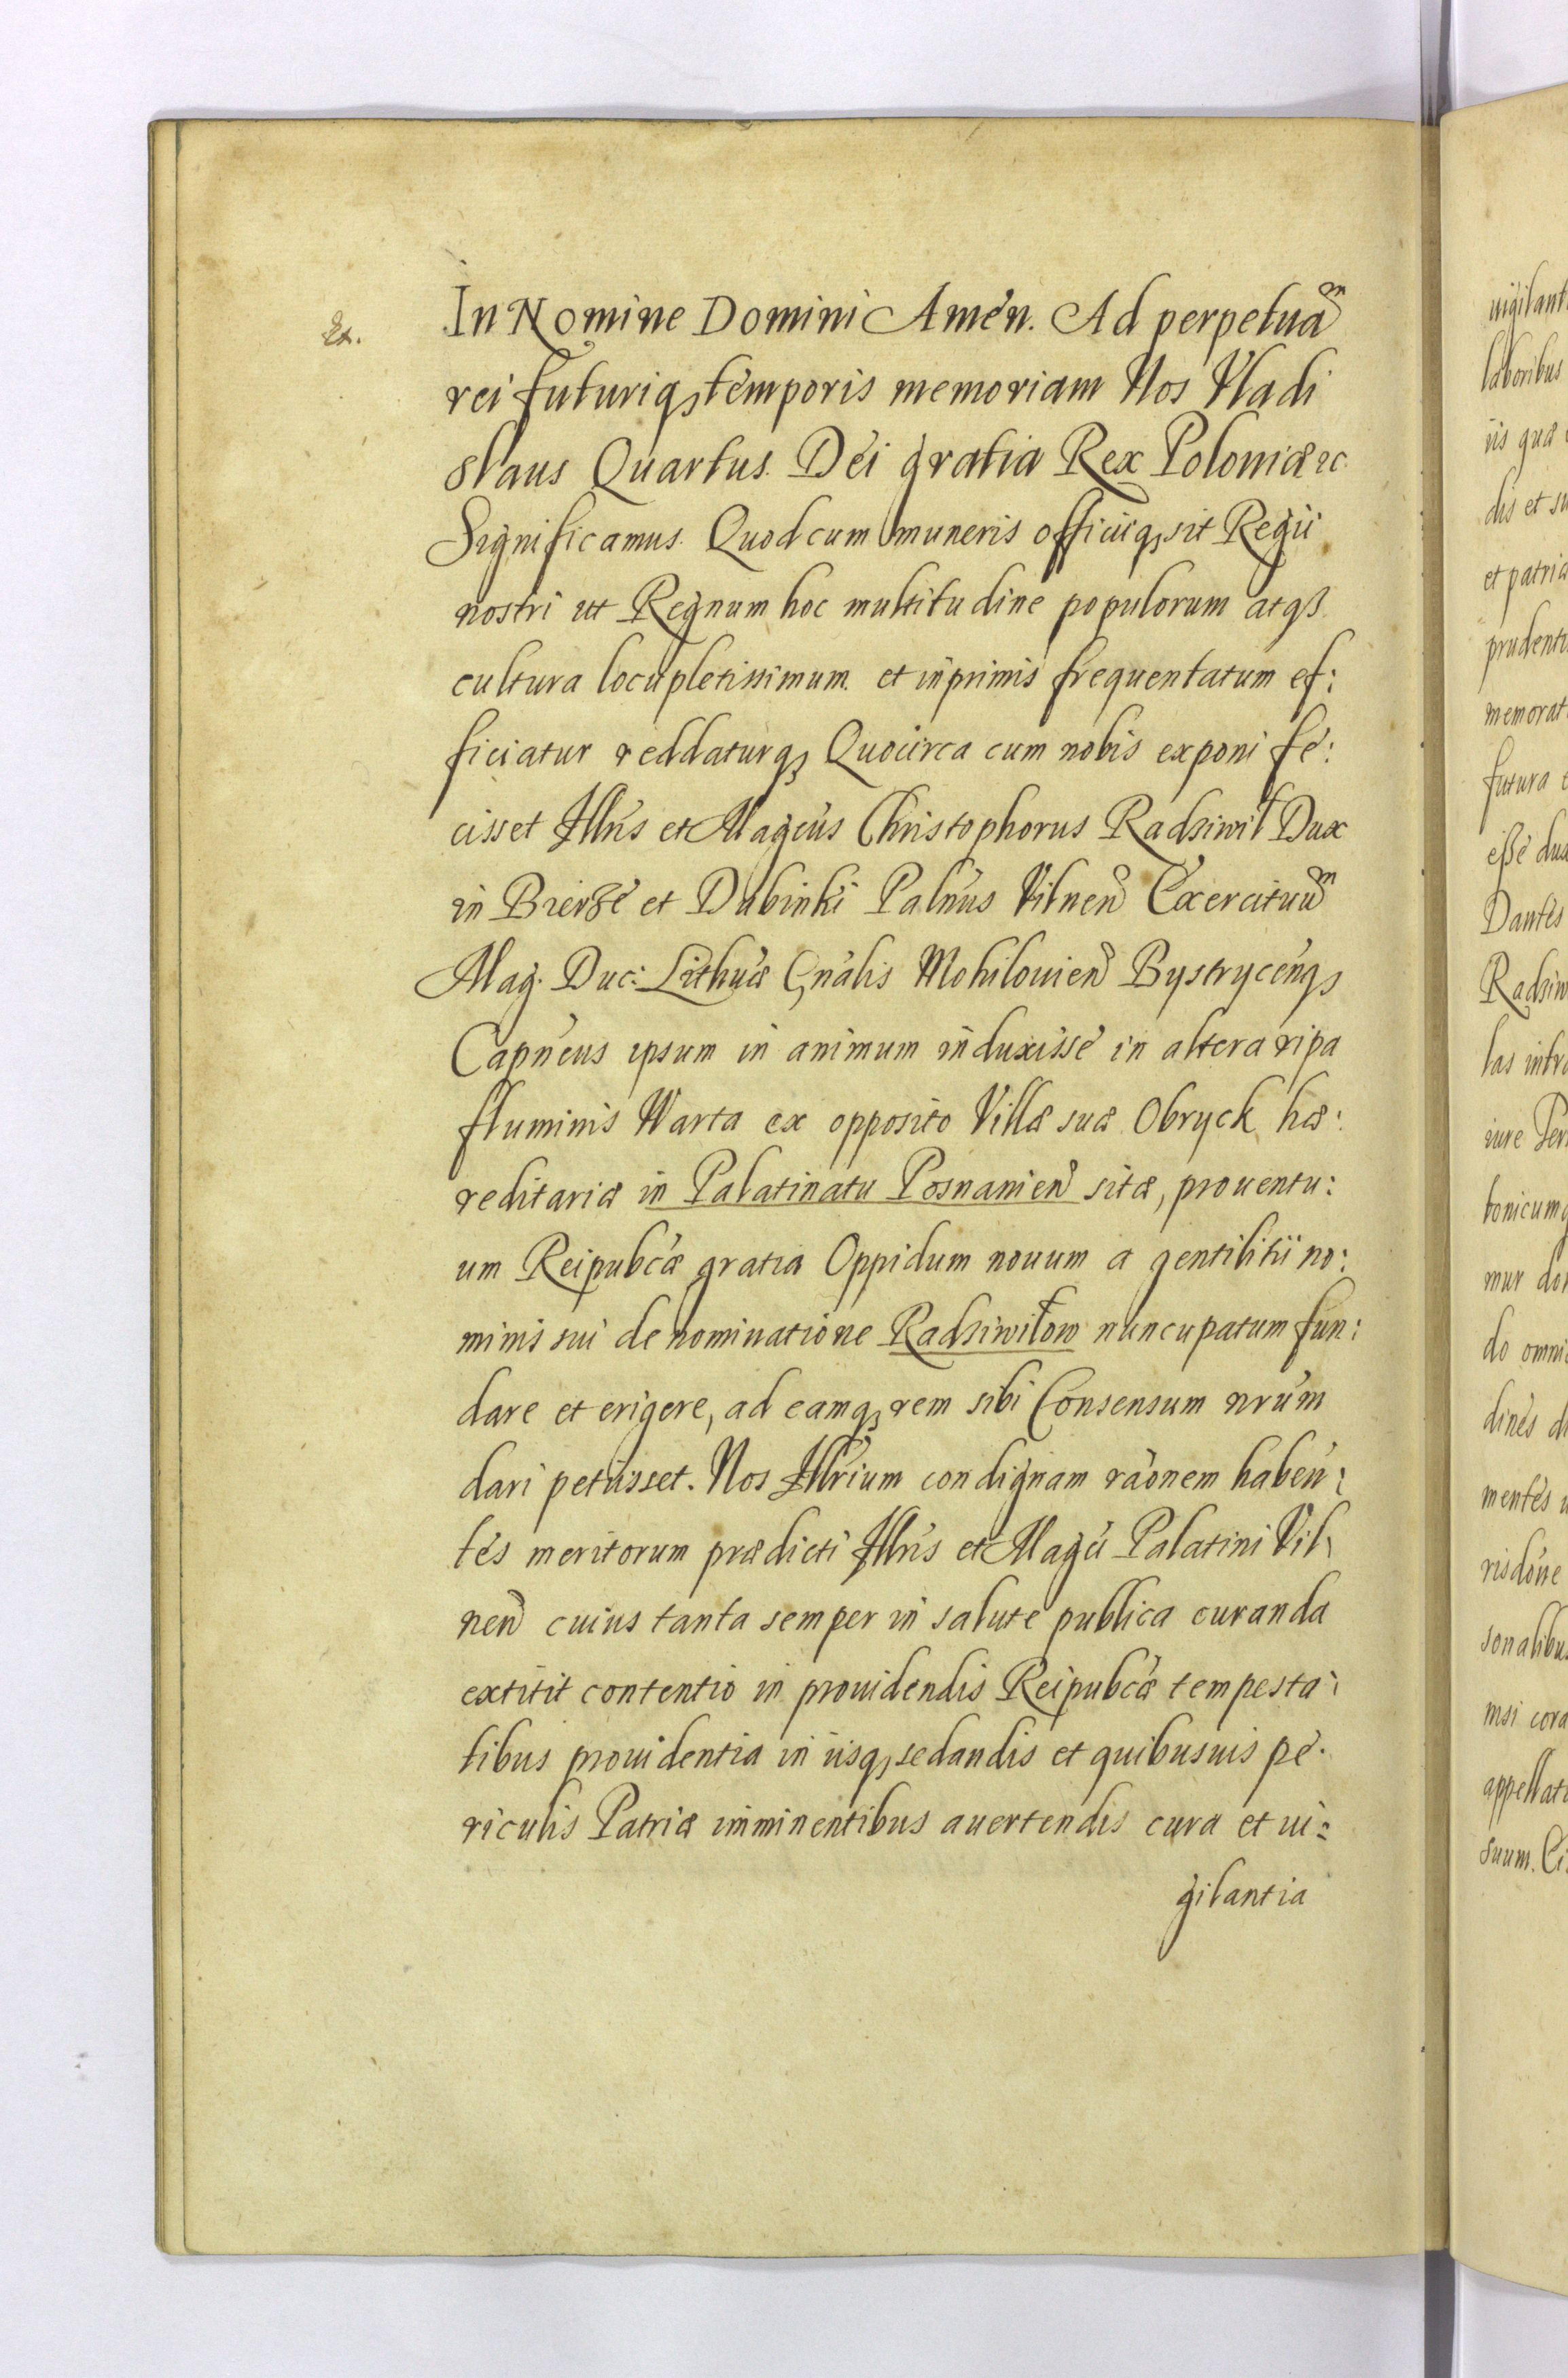 In Nomine Domini Amen. Ad perpetuã
rei futuriq₃ temporis memoriam Nos Vladi
slaus Quartus. Dei gratia Rex Poloniæ ꝛc.
Significamus. Quod cum muneris officiiq₃ sit Regii
nostri ut Regnum hoc multitudine populorum atq₃
cultura locupletissimum. et inprimis frequentatum ef:
ficiatur reddaturq₃ Quocirca cum nobis exponi fe:
cisset Illris et Magcus Christophorus Radziwił Dux
in Bierże et Dubinki Palnus Vilnen Exercituũ
Mag. Duc: Lithuæ Gnalis Mohilouien Bystrycenq₃
Capneus ipsum in animum induxisse in altera ripa
fluminis Warta ex opposito Villæ suæ Obryck hæ:
reditariæ in Palatinatu Posnanien sitæ, prouentu:
um Reipubcæ gratia Oppidum nouum a gentilitii no:
minis sui denominatione Radziwiłow nuncupatum fun:
dare et erigere, ad eamq₃ rem sibi Consensum nrum
dari petiisset. Nos Illrium condignam raonem haben:
tes meritorum prædicti Illris et Magci Palatini Vil:
nen cuius tanta semper in salute publica curanda
extitit contentio in prouidendis Reipubcæ tempesta:
tibus prouidentia in iisq₃ sedandis et quibusuis pe:
riculis Patriæ imminentibus auertendis cura et ui=
gilantia
uigilant
laboribus
iis quæ
dis et su
et patria
prudenti
memorat
futura
eße dua
Dantes
Radziw
las intra
iure
tonicumq
mur
do omni
dines
mentes
sonalibus
appellati
suum.